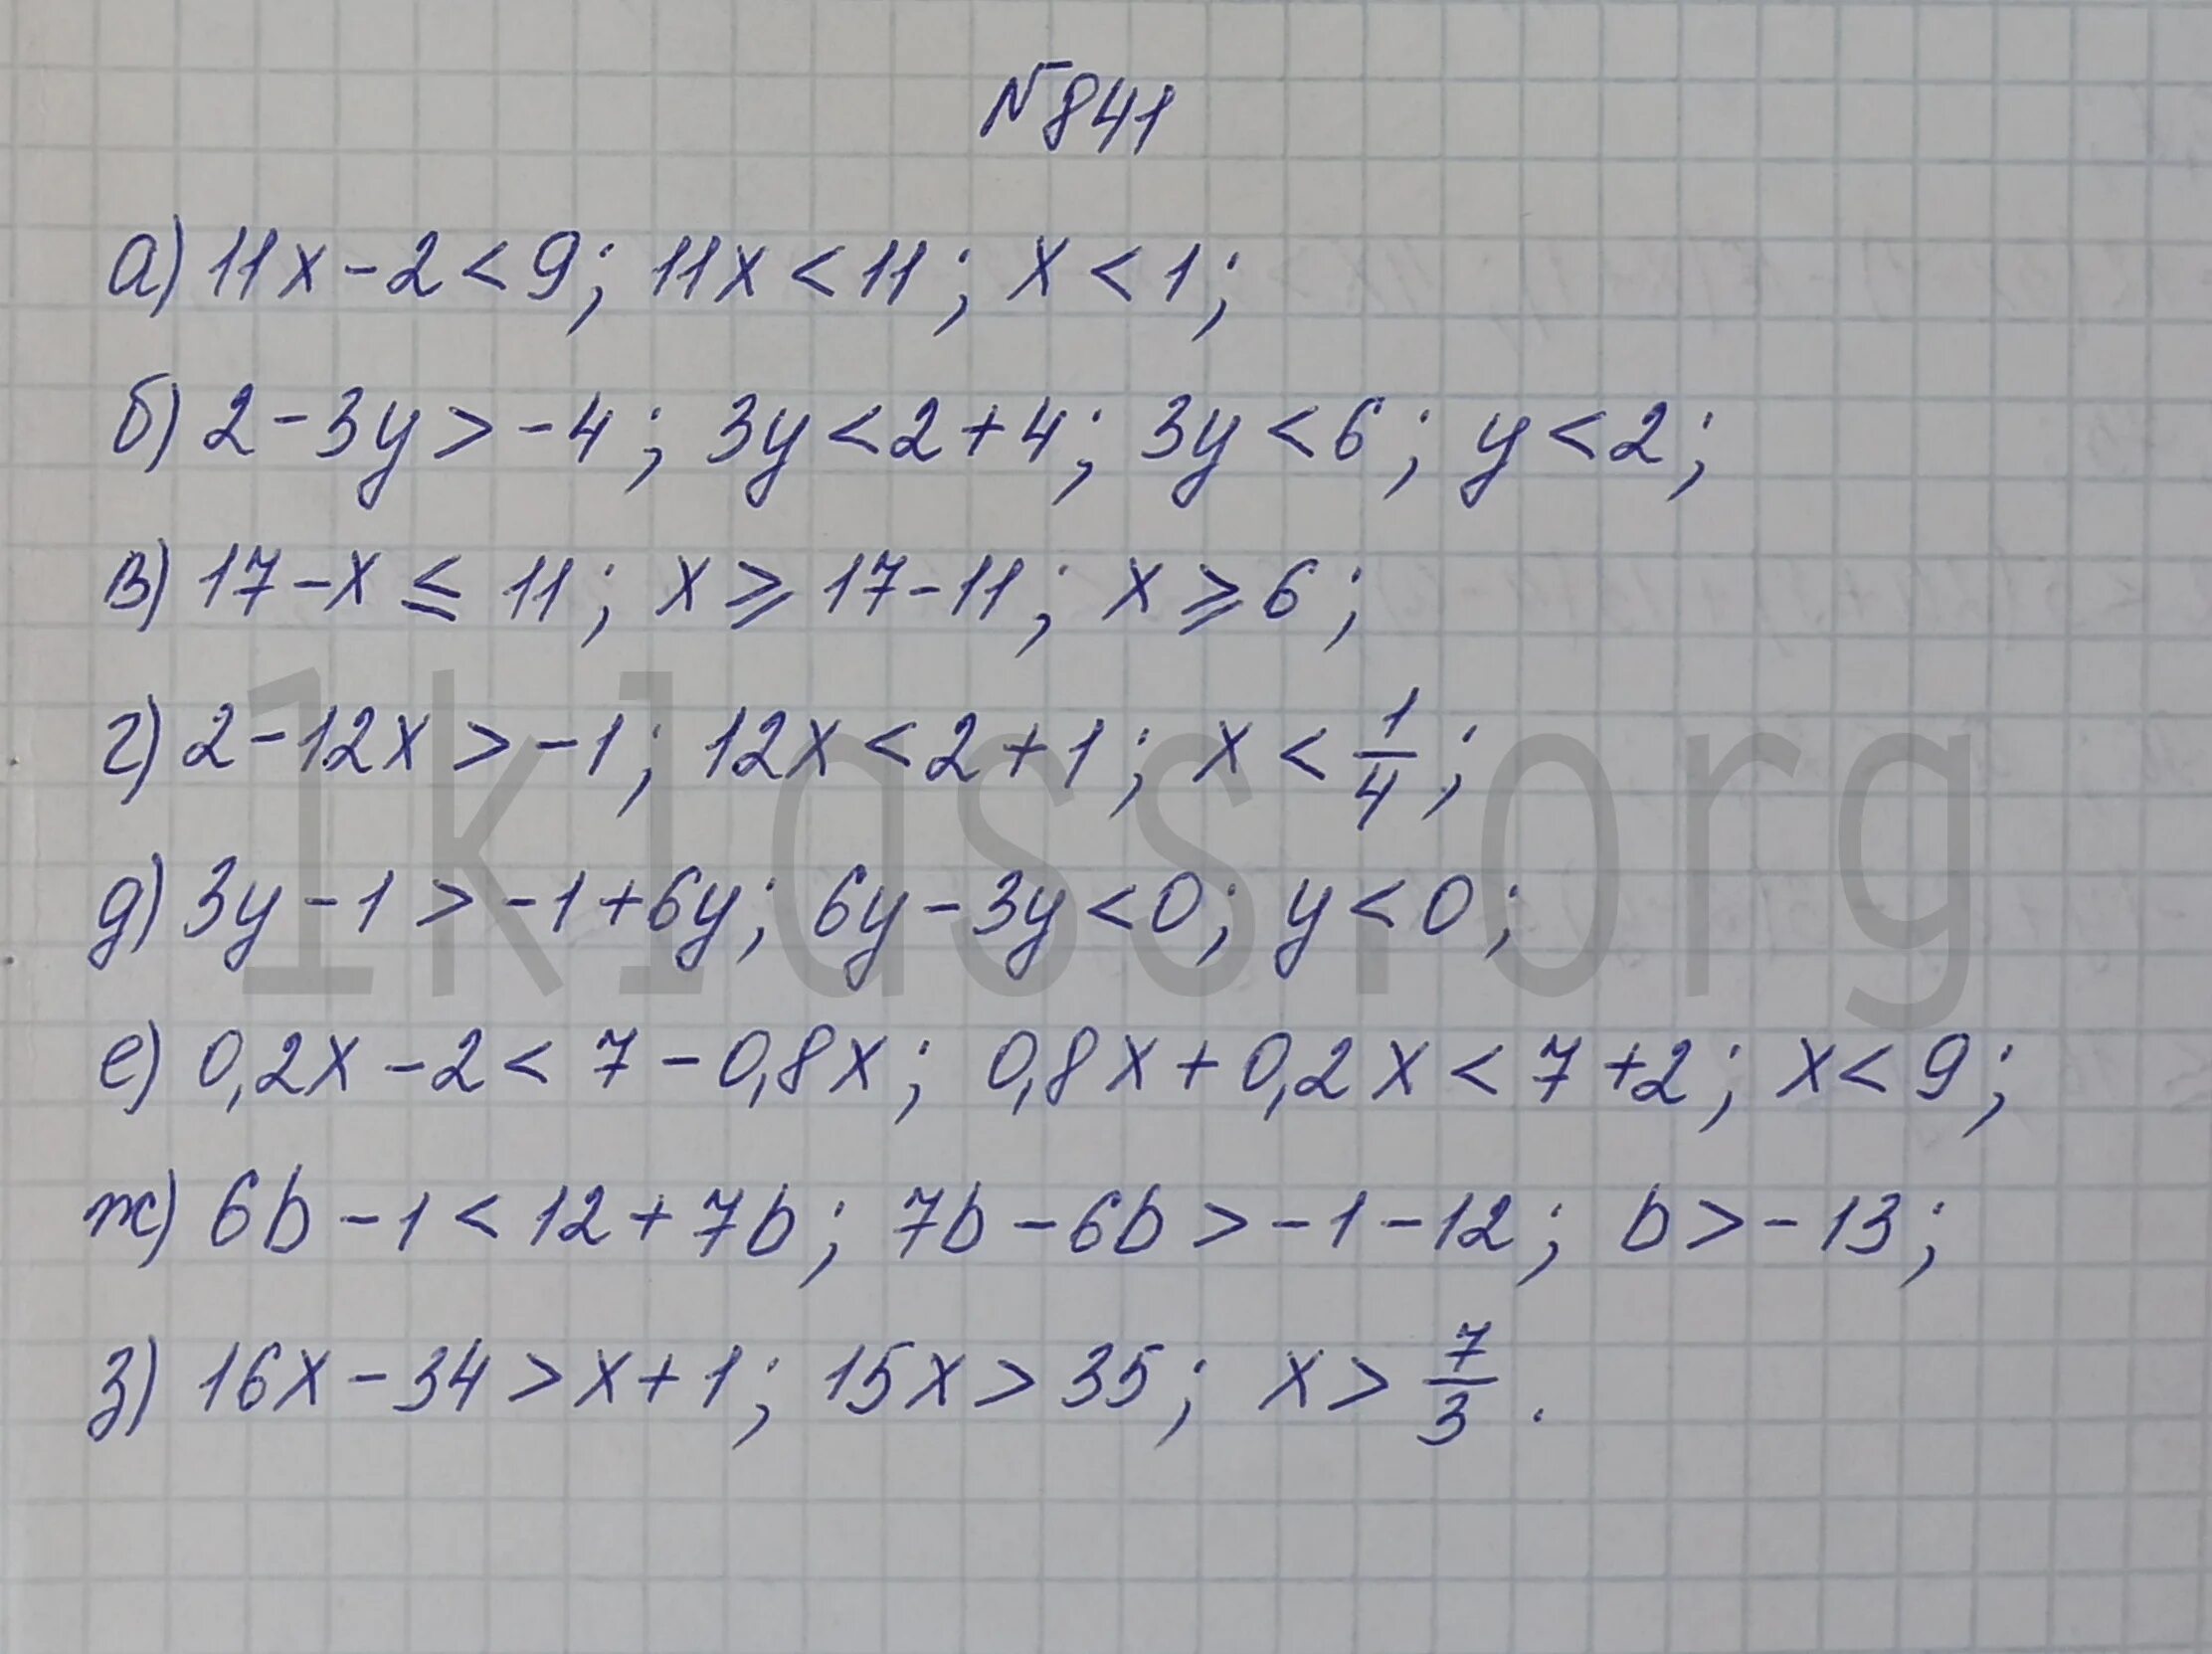 №841
а) 11x - 2 < 9; 11x < 11; x < 1;
б) 2 - 3y > -4; 3y < 2 + 4; 3y < 6; y < 2;
в) 17 - x ≤ 11; x ⩾ 17 - 11; x ⩾ 6;
г) 2 - 12x > -1; 12x < 2 + 1; x < 1/4;
д) 3y - 1 > -1 + 6y; 6y - 3y < 0; y < 0;
е) 0,2x - 2 < 7 - 0,8x; 0,8x + 0,2x < 7 + 2; x < 9;
ж) 6b - 1 < 12 + 7b; 7b - 6b > -1 - 12; b > -13;
з) 16x - 34 > x + 1; 15x > 35; x > 7/3.
1klass.org